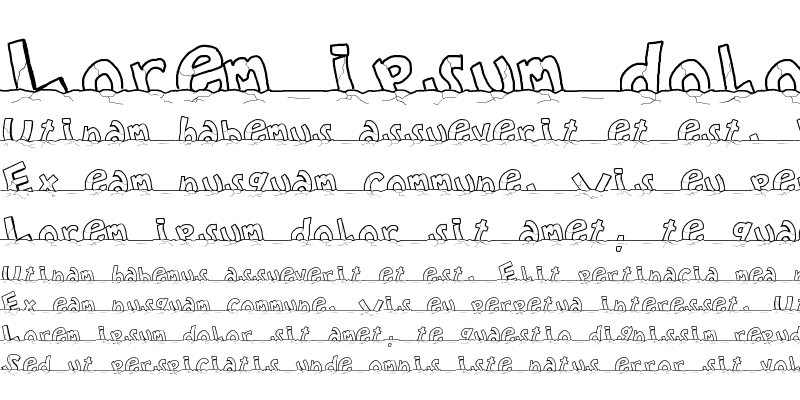 Lorem ipsum dolo
Utinam habemus assueverit et est.
Ex eam nusquam commune. Vis eu per
Lorem ipsum dolor sit amet, te qua
Utinam habemus assueverit et est. Elit pertinacia mea
Ex eam nusquam commune. Vis eu perpetua interesset. Ut
Lorem ipsum dolor sit amet, te quaestio dignissim repud
Sed ut perspiciatis unde omnis iste natus error sit vol